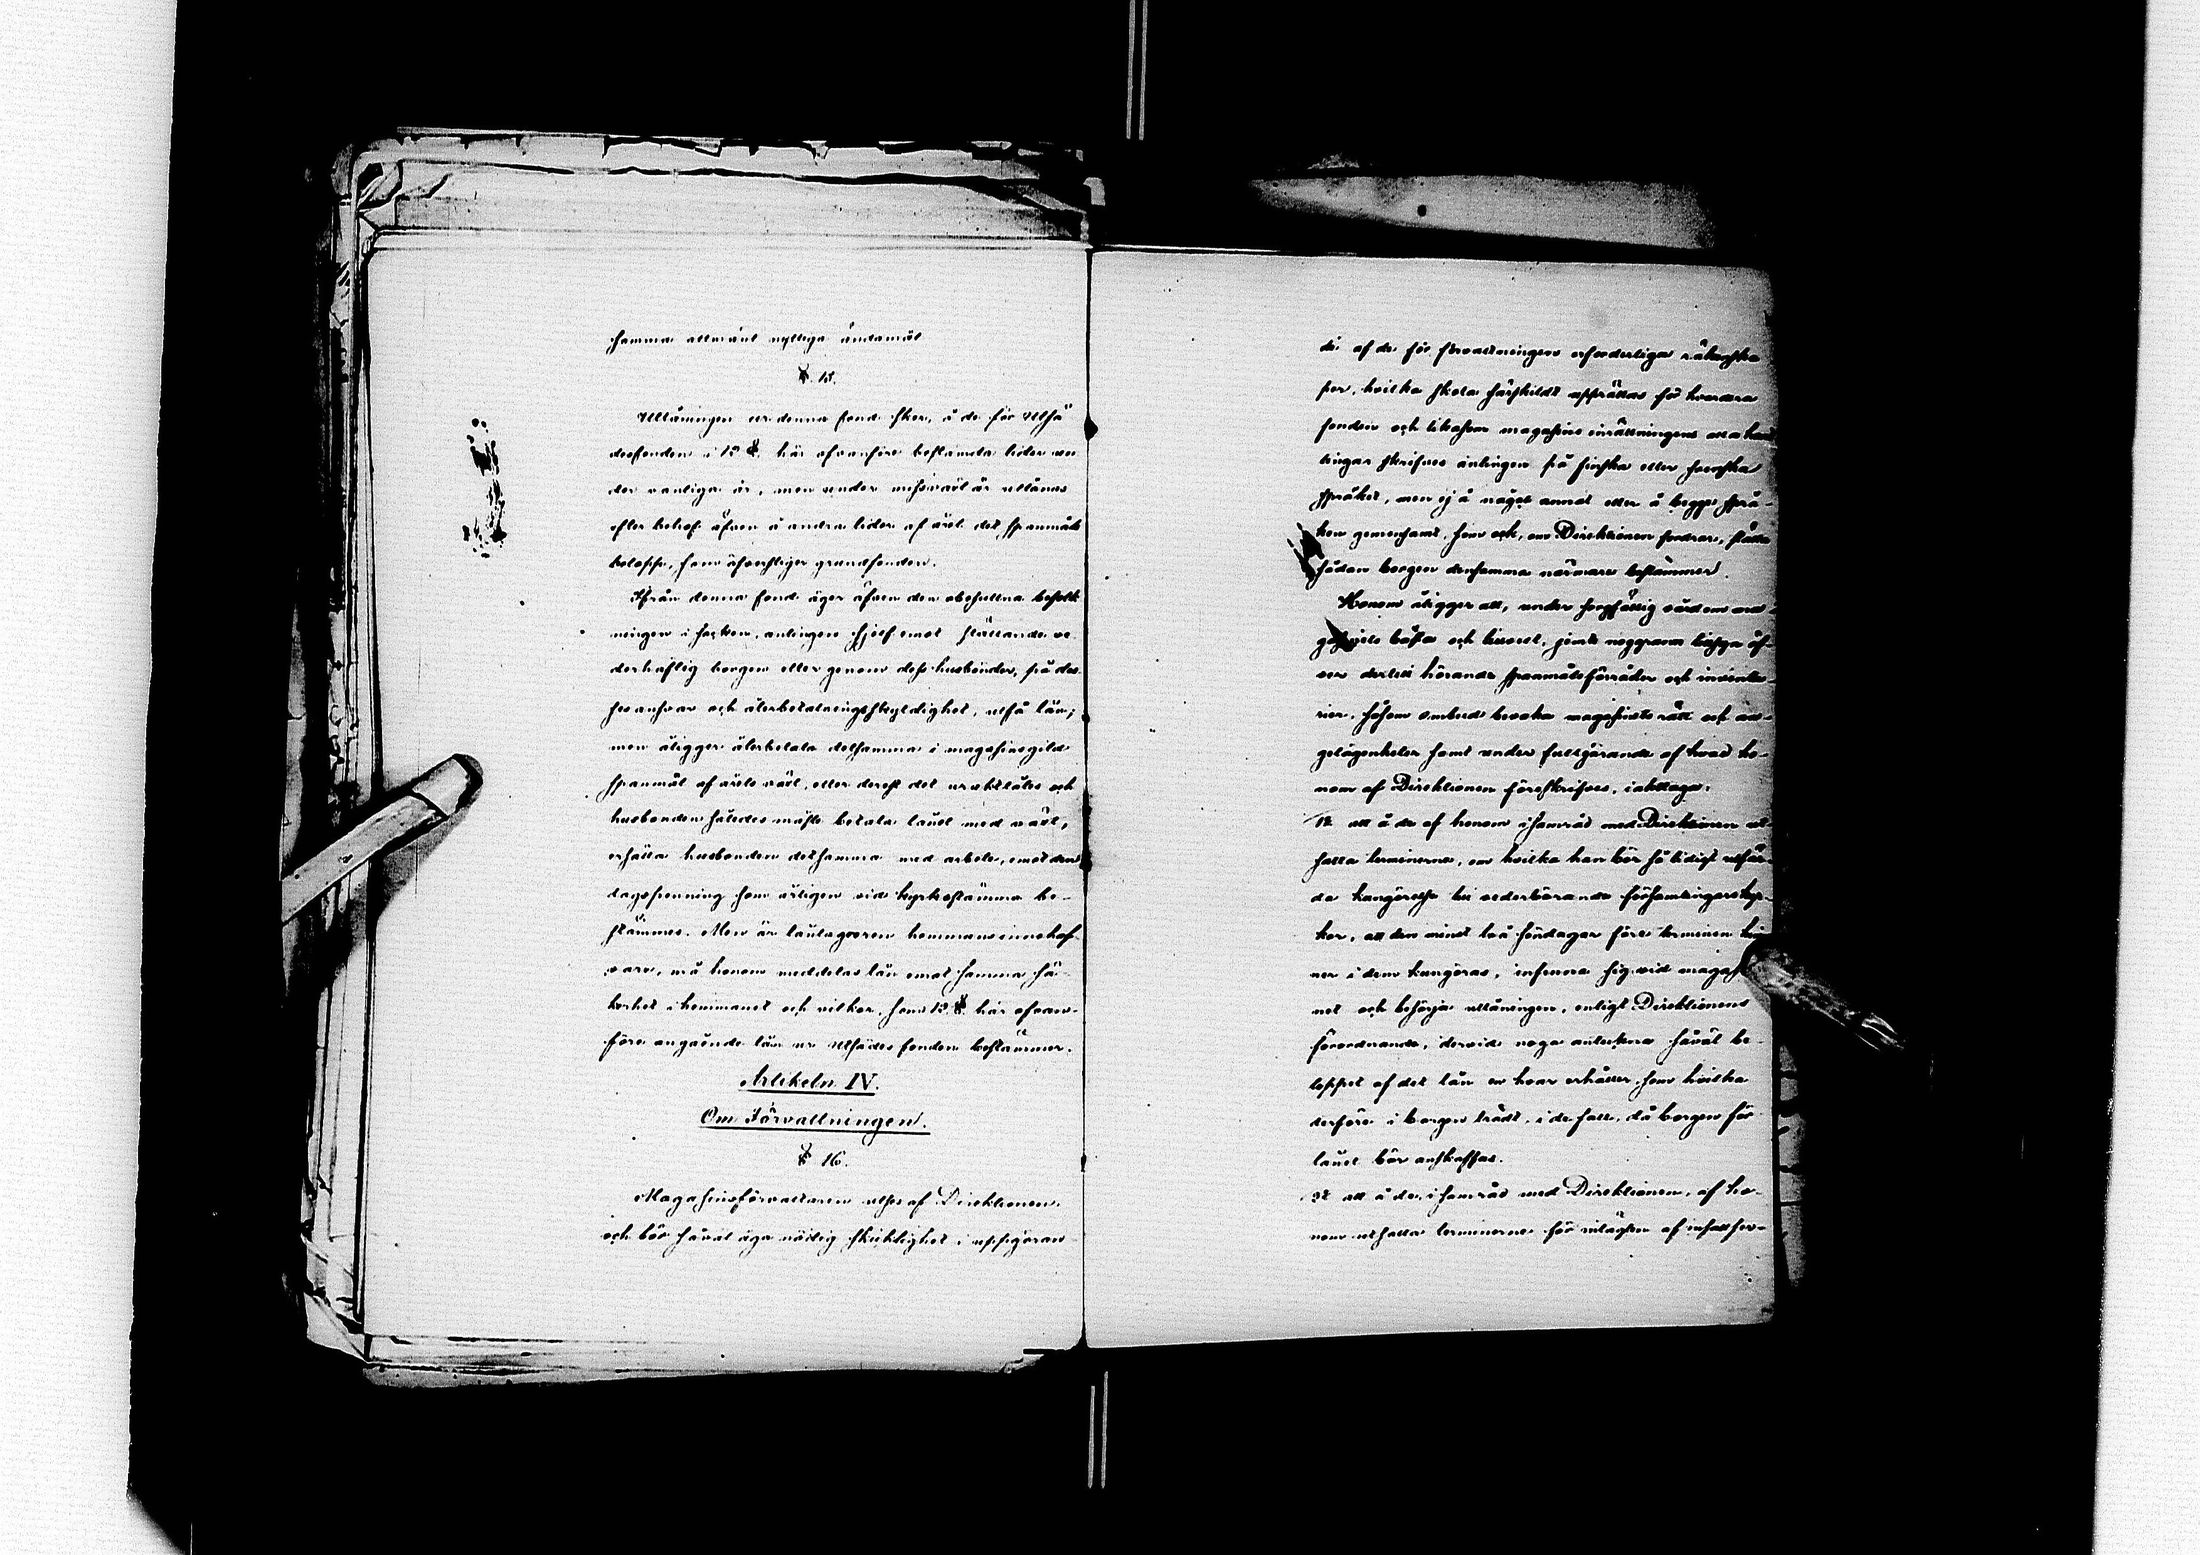 samma allmänt nyttiga ändamål
§. 15.
Utlåningen ur denna fond sker, å de för utsä
desfonden i 12 §. här ofvanföre bestämda tider un
der vanliga år, men under missväxt år utlånas
efter behof äfven å andra tider af året det spanmåls
belopp, som öfverstiger grundfonden.
Ifrån denna fond äger äfven den obesuttna befolk
ningen i socken, antingen sjelf emot ställande ve
derhäftig borgen eller genom dess husbönder, på des
ses ansvar och återbetalningsskyldighet, utfå lån;
men åligger återbetala detsamma i magasinsgild
spanmål af årets växt, eller derest det uraktlåtes och
husbonden således måste betala lånet med växt,
ersätta husbonden detsamma med arbete, emot den
dagspenning som årligen vid kyrkostämma be-
stämmes. Men är låntagaren hemmansinnehaf-
vare, må honom meddelas lån emot samma sä-
kerhet i hemmanet och vilkor, som 12 §. här ofvan-
före angående lån ur utsädesfonden bestämmer.
Artikeln IV.
Om Förvaltningen.
§ 16.
Magasinsförvaltaren utses af Direktionen,
och bör såväl äga nödig skicklighet i uppgöran
de af de för förvaltningen erforderliga räkenska
per, hvilka skola särskildt upprättas för hvardera
fonden och likasom magasins inrättningens alla hand
lingar skrifvas antingen på finska eller svenska
språket, men ej å något annat eller å begge språ-
ken gemensamt, som ock, om Direktionen fordrar, ställa
sådan borgen densamma närmare bestämmer.
Honom åligger att, under sorgfällig vård om ma-
gasinets bästa och huset, jemte noggrann tillsyn öf-
ver dertill hörande spanmålsförråder och inventa-
rier, såsom ombud bevaka magasinets rätt och an-
gelägenheter samt under fullgörande af hvad ho-
nom af Direktionen föreskrifves, iakttaga:
1º att å de af honom i samråd med Direktionen ut-
satta terminerne, om hvilka han bör så tidigt utfär-
da kungörelse till vederbörande församlingars kyr-
kor, att den minst två söndagar före terminen hin
ner i dem kungöras, infinna sig vid magasi
net och börja utlåningen, enligt Direktionens
förordnande, dervid noga anteckna såväl be-
loppet af det lån en hvar erhåller, som hvilka
derföre i borgen trädt, i de fall, då borgen för
lånet bör anskaffas.
2º att å de, i samråd med Direktionen, af ho-
nom utsatta terminerne för inlägsen af insatser-